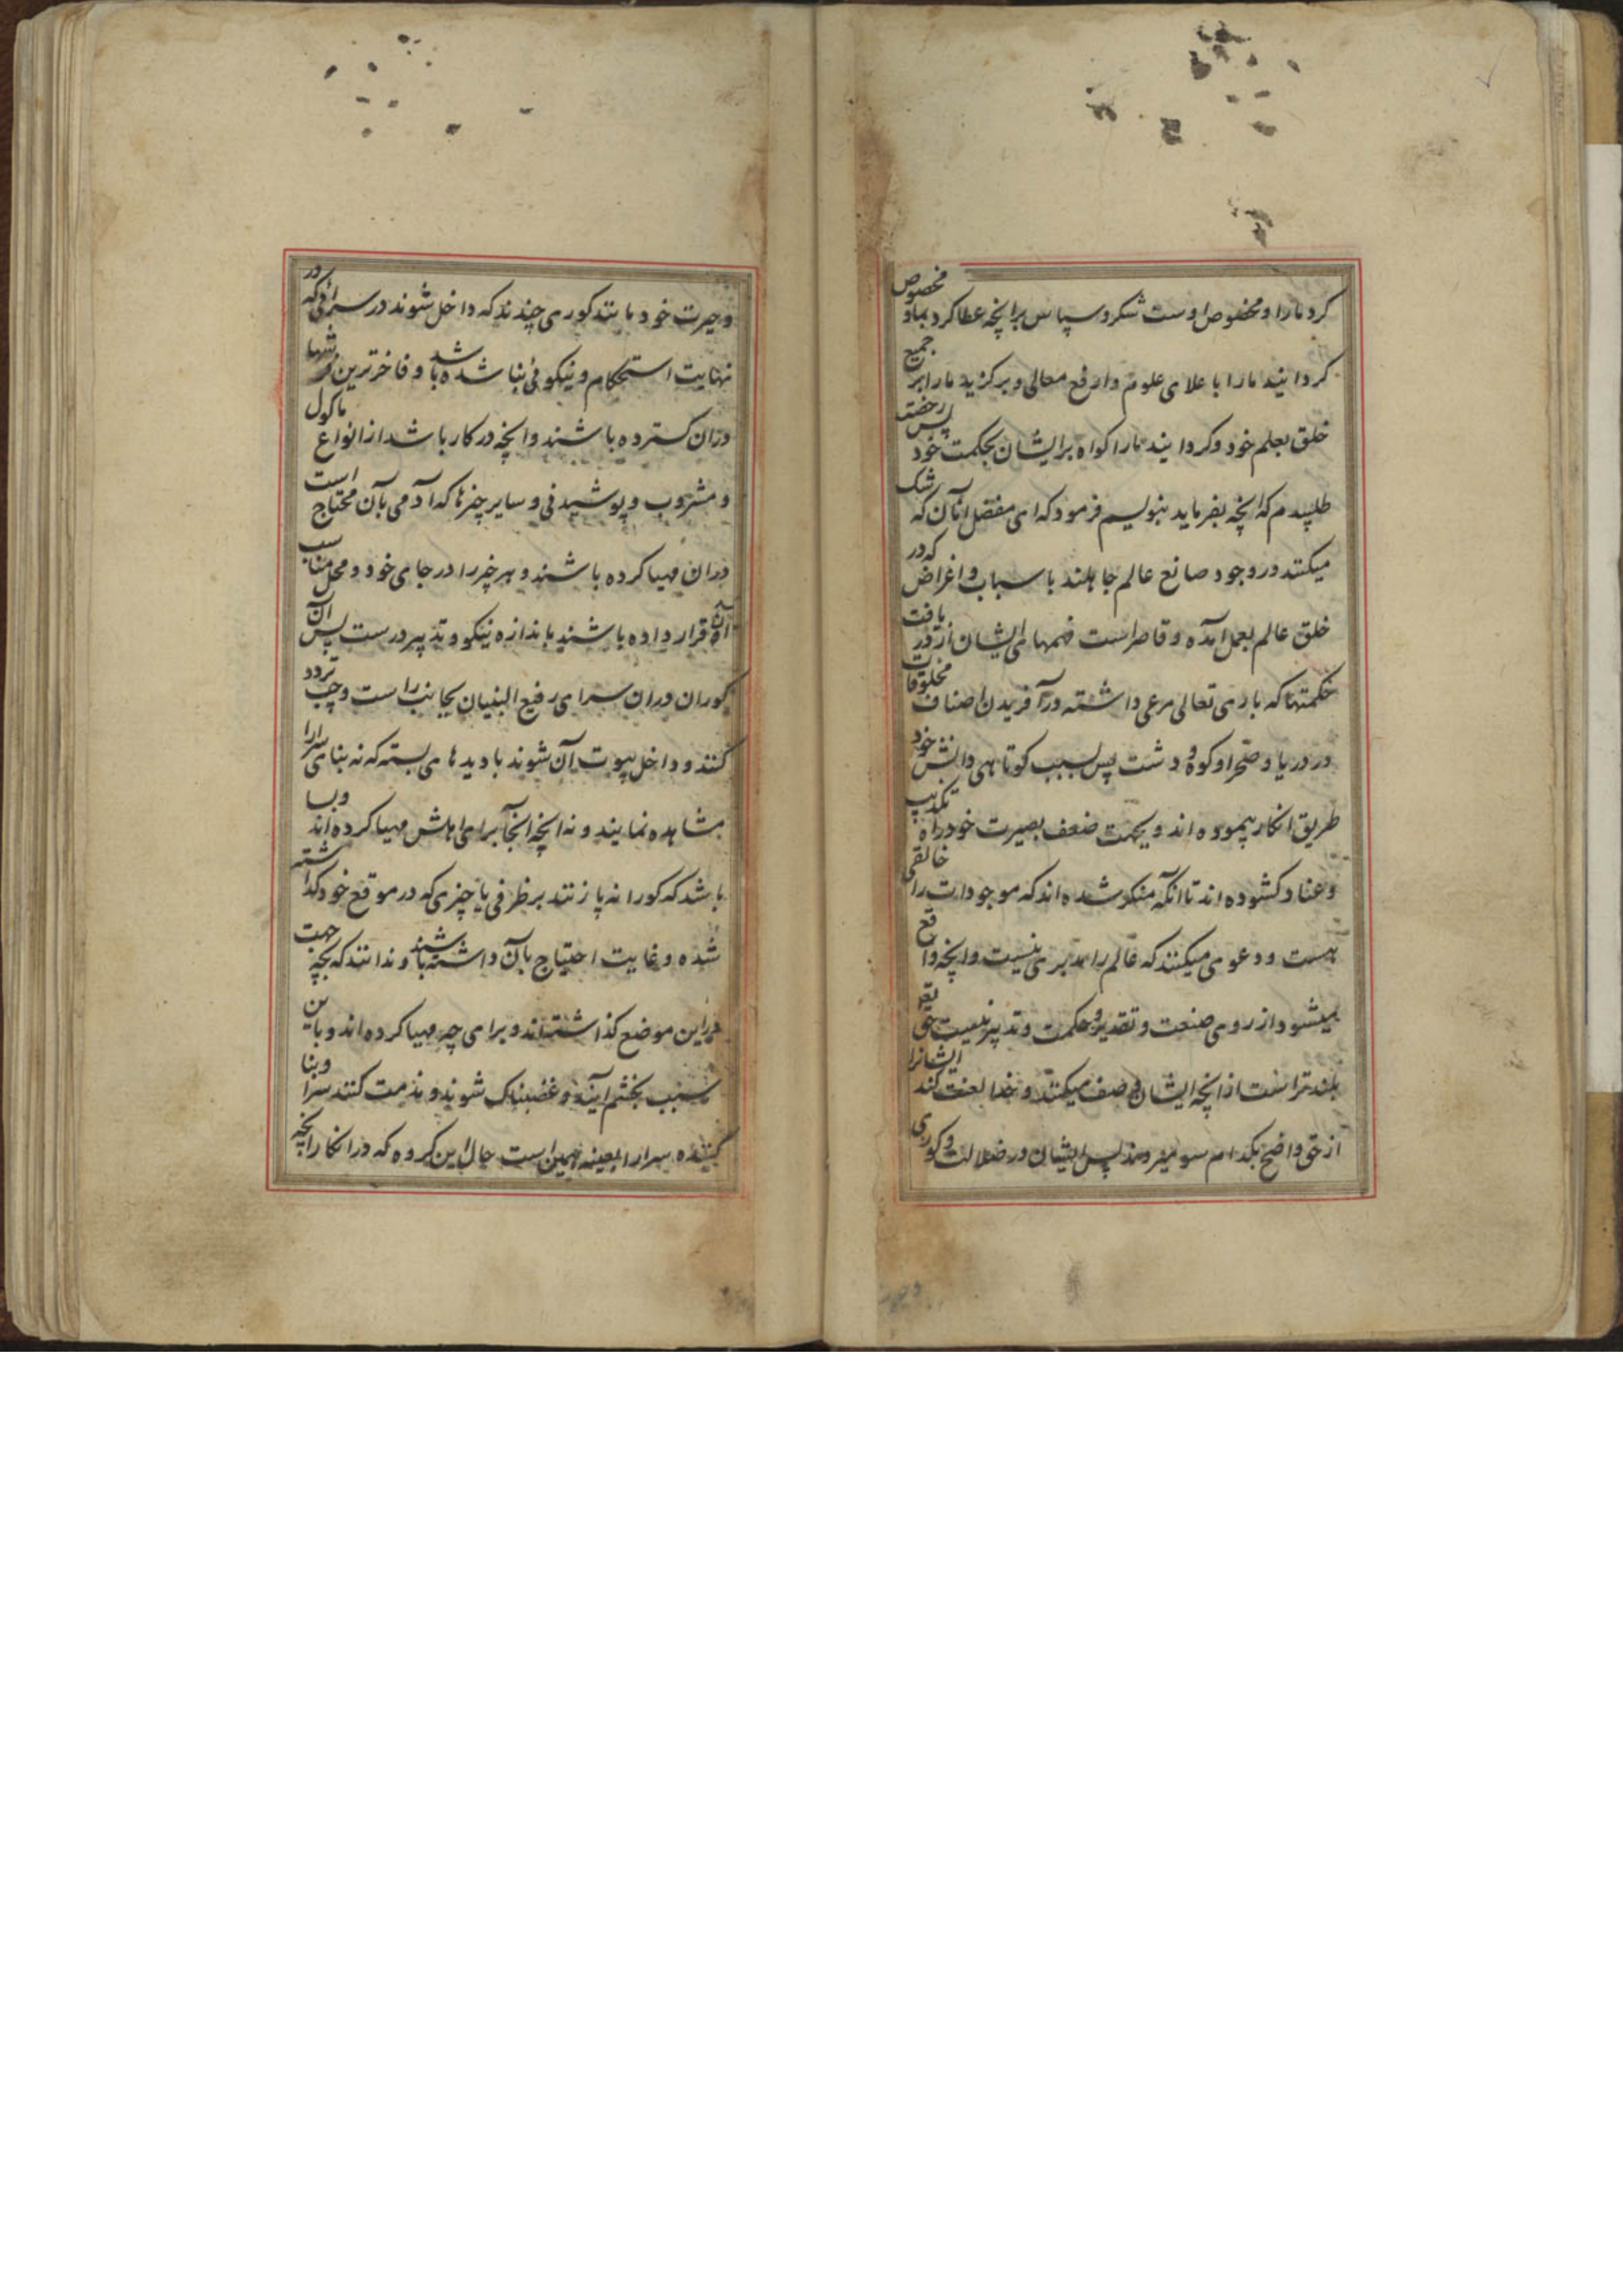 کرد ما را و مخصوص اوست شکر و سپاس برانچه عطا کرد بما و مخصوص
کردانید ما را باعلای علوم و ارفع معالی و برکزید ما را بر جمیع
خلق بعلم خود و کردانید ما را کواه برایشان بحکمت خود پس رخصت
طلبیدم که انچه بفرماید بنویسم فرمود که ای مفضل آنان که شک
میکنند در وجود صانع عالم جاهلند باسباب و اغراض که در
خلق عالم بعمل آمده و قاصر است فهمهای ایشان از دریافت
حکمتها که باری تعالی مرعی داشته در آفریدن اصناف مخلوقات
در دریا و صحرا و کوه و دشت پس بسبب کوتاهی دانش خود
طریق انکار پیموده اند و بجهت ضعف بصیرت خود راه تکذیب
و عناد کشوده اند تا انکه منکر شده اند که موجودات را خالقی
هست و دعوی میکنند که عالم را مدبری نیست و انچه واقع
میشود از روی صنعت و تقدیر و حکمت و تدبیر نیست حق تع
بلندتر است از انچه ایشان وصف میکنند و خدا لعنت کند ایشانرا
از حق واضح بکدام سو میروند پس ایشان در ضلالت و کوری
و حیرت خود مانند کوری چندند که داخل شوند در سرائی که در
نهایت استحکام و نیکوئی بنا شده باشد و فاخرترین فرشها
دران کسترده باشند و انچه در کار باشد از انواع ماکول
و مشروب و پوشیدنی و سایر چیزها که آدمی بآن محتاج است
دران مهیا کرده باشند و هر چیز را در جای خود و محل مناسب
آن قرار داده باشند باندازه نیکو و تدبیر درست پس آن
کوران دران سرای رفیع البنیان بجانب راست و چپ تردد
کنند و داخل بیوت آن شوند با دیدهای بسته که نه بنای سرا را
مشاهده نمایند و نه انچه انجا برای اهلش مهیا کرده اند و بسا
باشد که کورانه پا زنند بر ظرفی یا چیزی که در موقع خود کذاشته
شده و غایت احتیاج بآن داشته باشند و ندانند که بچه جهت
دراین موضع کذاشته اند و برای چه مهیا کرده اند و باین
سبب بخشم آیند و غضبناک شوند و مذمت کنند سرا و بنا
کننده سرا را بعینه همین است حال این کروه که در انکار انچه